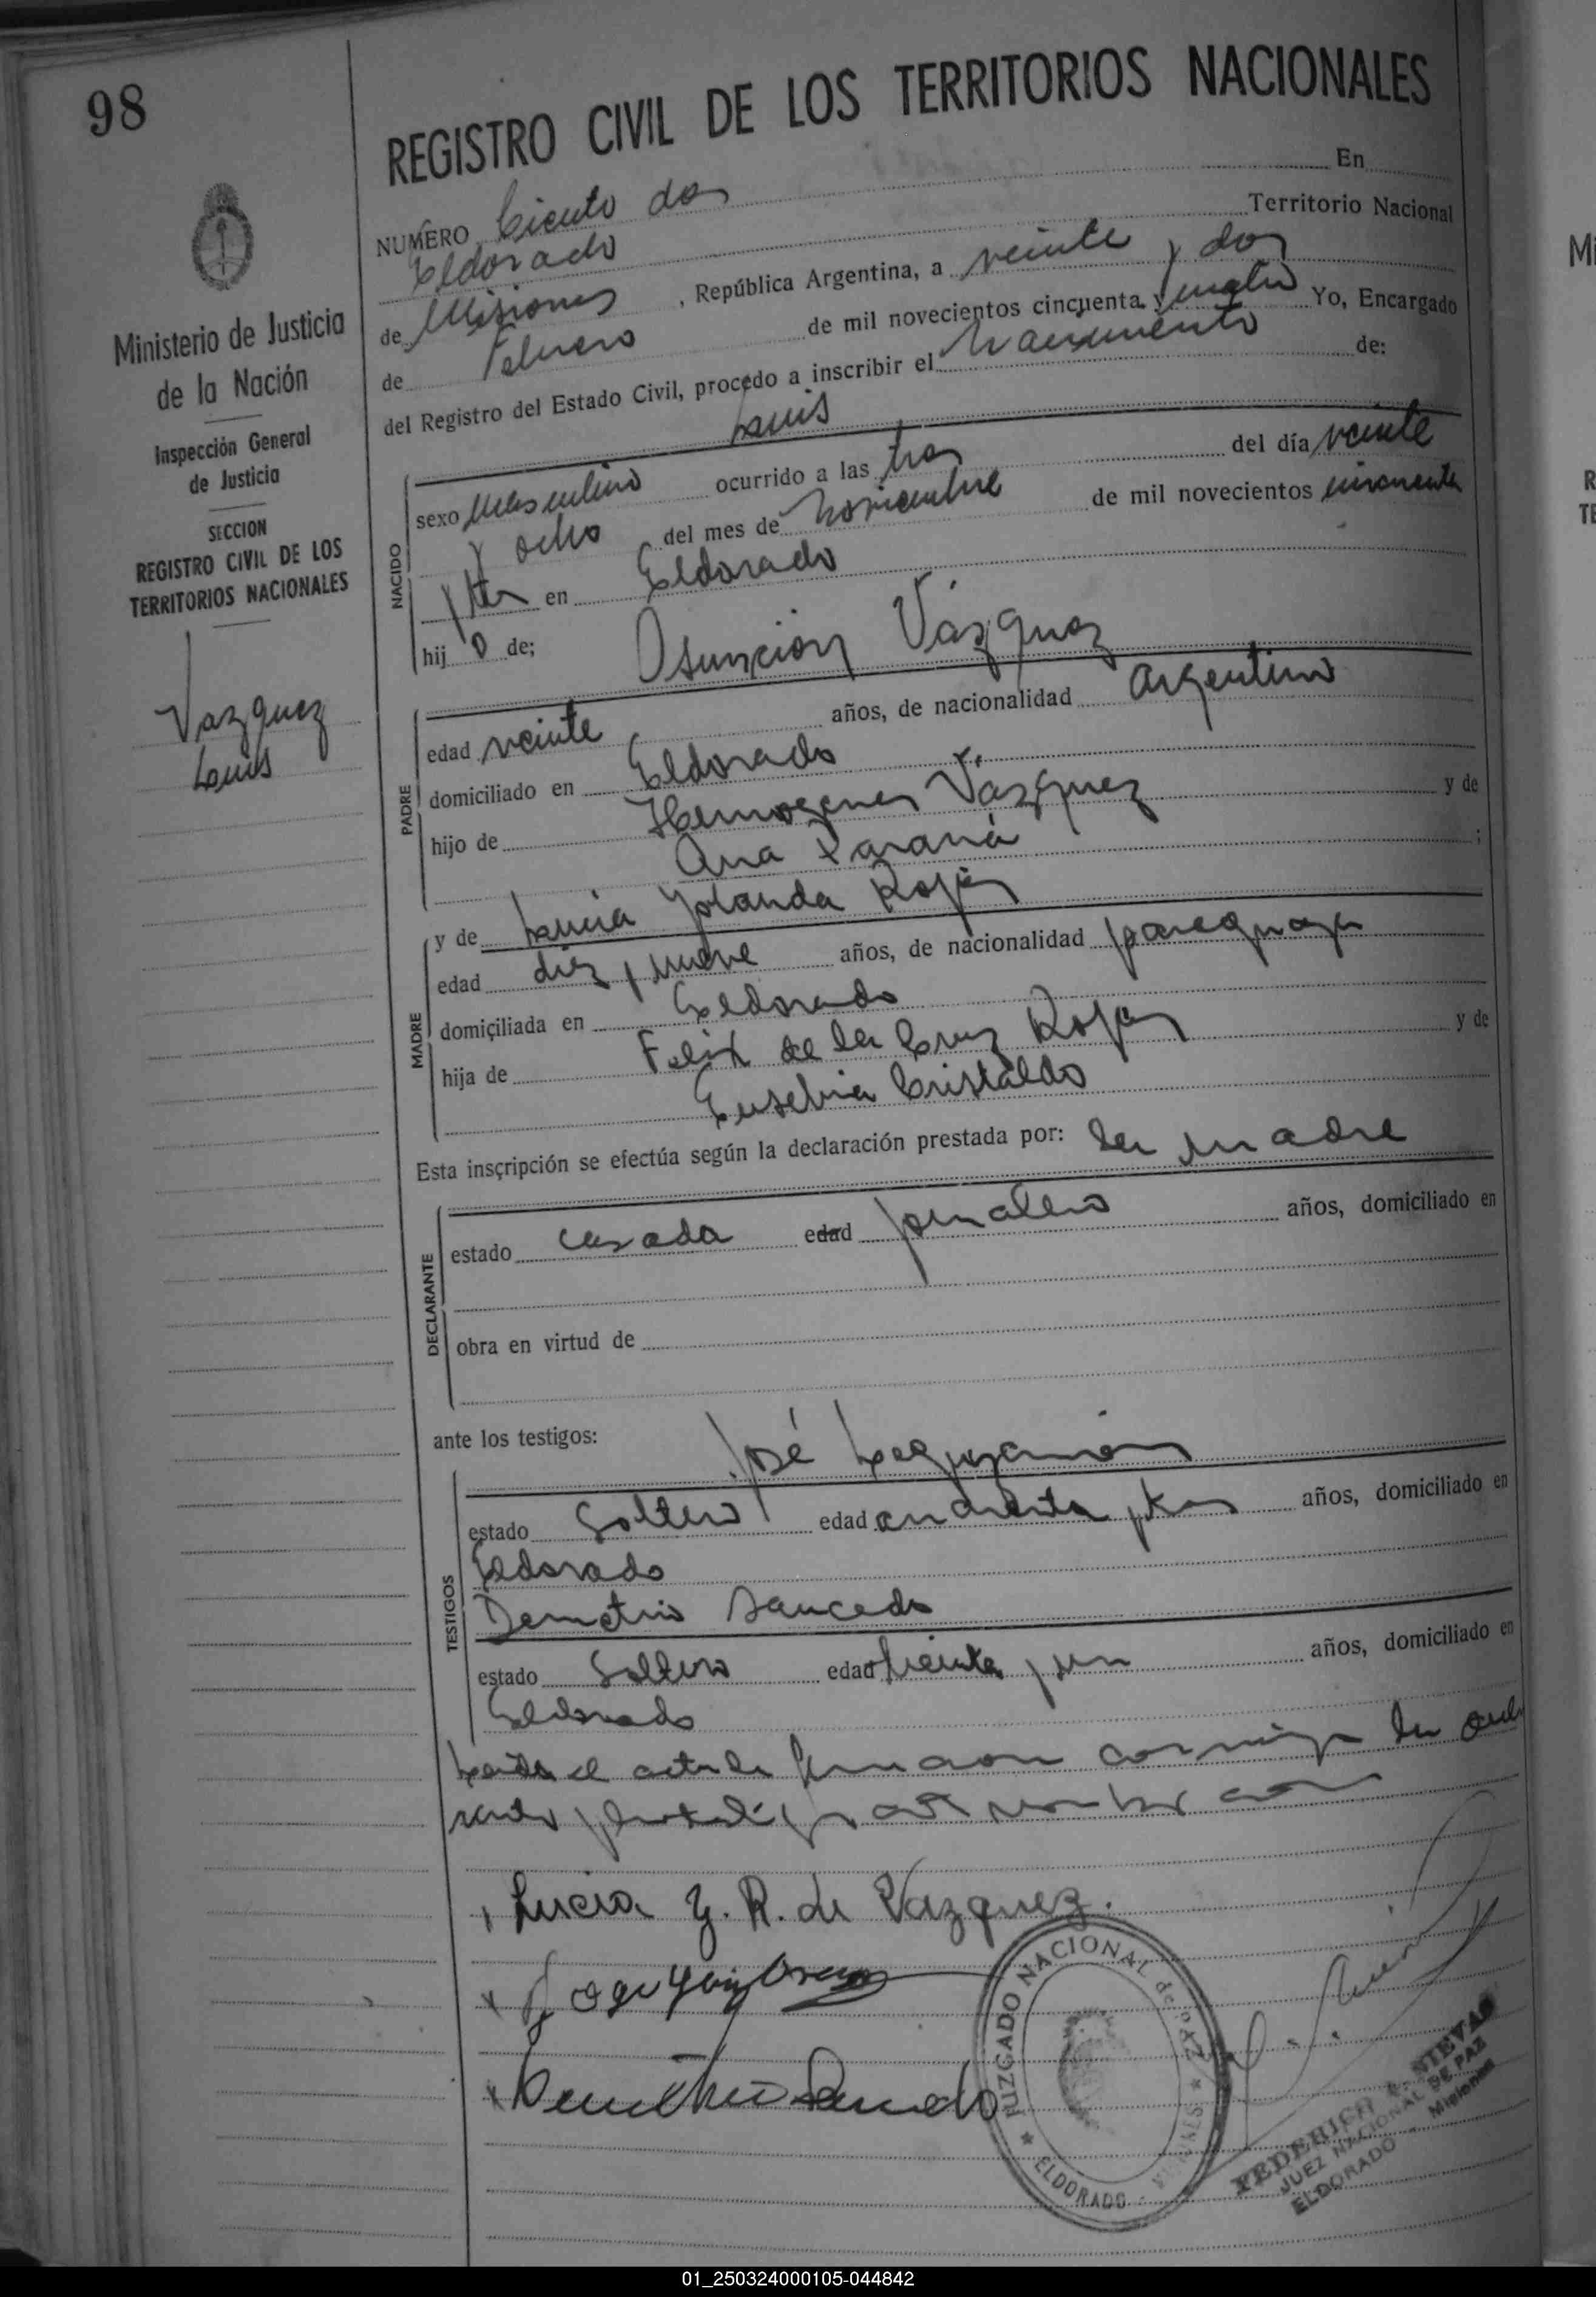 98
REGISTRO CIVIL DE LOS TERRITORIOS NACIONALES
Ministerio de Justicia
de la Nación
Inspección General
de Justicia
SECCION
REGISTRO CIVIL DE LOS
TERRITORIOS NACIONALES
Vazquez
Luis
NUMERO Ciento dos En
Eldorado Territorio Nacional
de Misiones, República Argentina, a veinte y dos
de Febrero de mil novecientos cincuenta y cuatro Yo, Encargado
del Registro del Estado Civil, procedo a inscribir el nacimiento de:
Luis
NACIDO
sexo Masculino ocurrido a las tres del día veinte
y ocho del mes de Noviembre de mil novecientos cincuenta
y tres en Eldorado
hij o de; Asunción Vázquez
PADRE
edad veinte años, de nacionalidad argentino
domiciliado en Eldorado
hijo de Hermogenes Vázquez y de
Ana Paraná ;
y de Lucia Yolanda Rojas
MADRE
edad diez y nueve años, de nacionalidad paraguaya
domiciliada en Eldorado
hija de Felix de la Cruz Rojas y de
Eusebia Cristaldo
Esta inscripción se efectúa según la declaración prestada por: la madre
DECLARANTE
estado casada edad años, domiciliado en
obra en virtud de
ante los testigos: José
TESTIGOS
estado Soltero edad cuarenta y tres años, domiciliado en
Eldorado
Demetrio Saucedo
estado Soltero edad treinta y un años, domiciliado en
Eldorado
Leida el acta la firmaron conmigo la
Lucia Y. R. de Vazquez.
JUZGADO NACIONAL de PAZ
ELDORADO
FEDERICO NIEVAS
JUEZ NACIONAL DE PAZ
ELDORADO - Misiones
Mi
R
TE
01_250324000105-044842